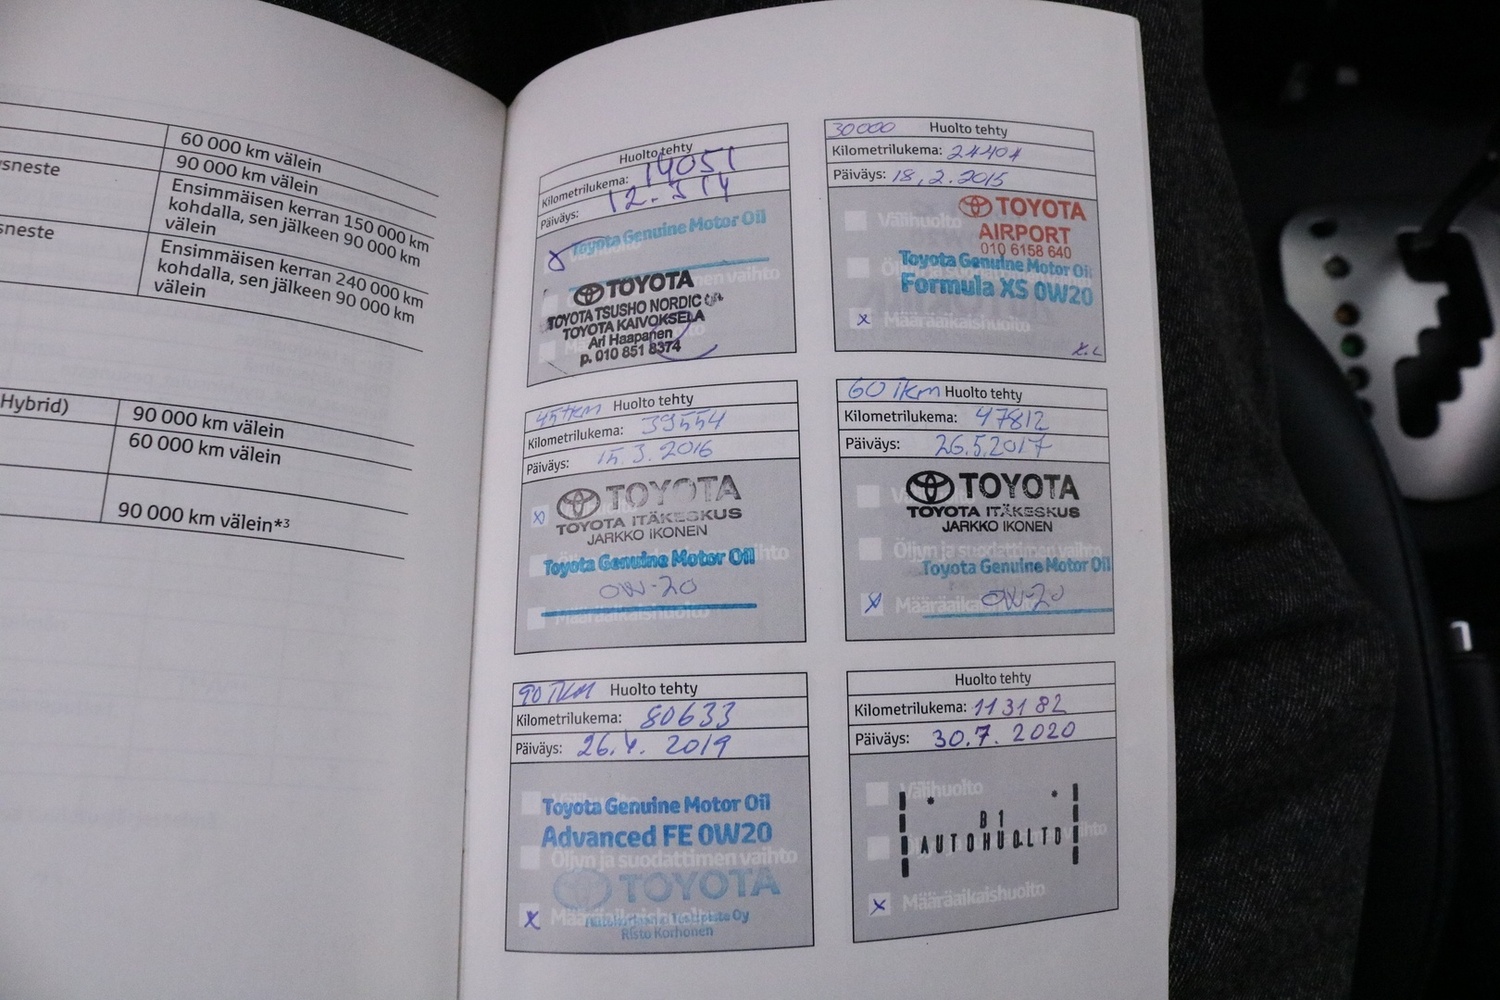 60 000 km välein
90 000 km välein
sneste
Ensimmäisen kerran 150 000 km
kohdalla, sen jälkeen 90 000 km
välein
sneste
Ensimmäisen kerran 240 000 km
kohdalla, sen jälkeen 90 000 km
välein
Hybrid)
90 000 km välein
60 000 km välein
90 000 km välein*3
Huolto tehty
Kilometrilukema: 14051
Päiväys: 12.3 14
Toyota Genuine Motor Oil
TOYOTA
TOYOTA TSUSHO NORDIC Oy
TOYOTA KAIVOKSELA
Ari Haapanen
p. 010 851 8374
30000 Huolto tehty
Kilometrilukema: 24404
Päiväys: 18.2.2015
Välihuolto
TOYOTA
AIRPORT
010 6158 640
Toyota Genuine Motor Oil
Formula XS 0W20
x Määräaikaishuolto
45 tkm Huolto tehty
Kilometrilukema: 39554
Päiväys: 15.3.2016
x TOYOTA
TOYOTA ITÄKESKUS
JARKKO IKONEN
Toyota Genuine Motor Oil
0W-20
Määräaikaishuolto
60 Tkm Huolto tehty
Kilometrilukema: 47812
Päiväys: 26.5.2017
TOYOTA
TOYOTA ITÄKESKUS
JARKKO IKONEN
Öljyn ja suodattimen vaihto
Toyota Genuine Motor Oil
x Määräaikaishuolto
0W-20
90 TKM Huolto tehty
Kilometrilukema: 80633
Päiväys: 26.4. 2019
Toyota Genuine Motor Oil
Advanced FE 0W20
Öljyn ja suodattimen vaihto
TOYOTA
x
Risto Korhonen
Huolto tehty
Kilometrilukema: 113182
Päiväys: 30.7. 2020
Välihuolto
B1
AUTOHUOLTO
x Määräaikaishuolto